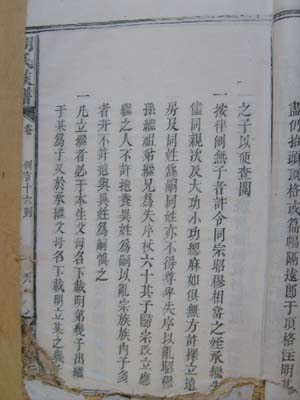 盡仍抬頭頂格或篇幅隔遠卽于頂格注明某
之子以便查閱
一按律例無子者許令同宗昭穆相當之姪承繼先
儘同親次及大功小功緦麻如俱無方許擇立遠
房及同姓爲嗣同姓亦不得尊卑失序以亂昭穆
孫繼祖弟繼兄爲失序杖六十其子歸宗改立應
繼之人不許抱養異姓爲嗣以亂宗族族內子多
者并不許抱與異姓爲嗣愼之
一凡立繼者必于本生父母名下載明第幾子出繼
于某爲子又於承繼父母名下載明立某之幾子
氏族譜 卷 例言十六則 六